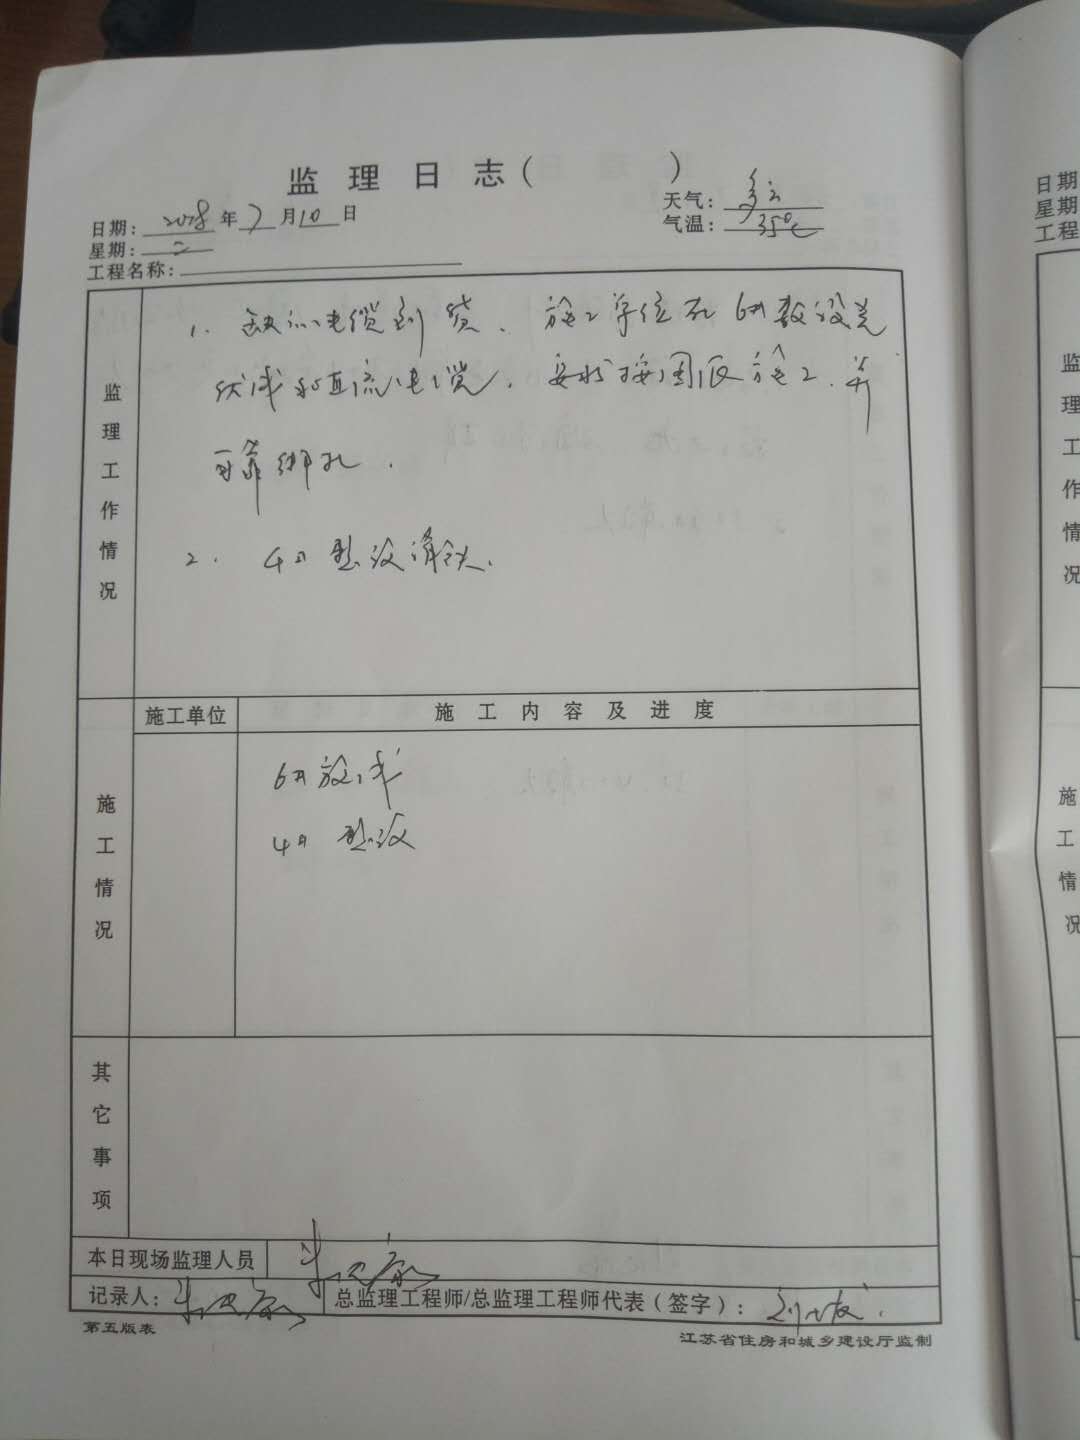 监理日志（ ）
日期：2018年7月10日
天气：多云
星期：二
气温：35℃
工程名称：
监理工作情况
1. 缺的电缆到货、施工单位在6#敷设光
伏成和直流电缆，要求按图纸施工，并
可靠绑扎．
2. 4#
施工单位
施工内容及进度
施工情况
6#
4#
其它事项
本日现场监理人员
记录人：
总监理工程师/总监理工程师代表（签字）：
第五版表
江苏省住房和城乡建设厅监制
日期
星期
工程
监理工作情况
施工情况